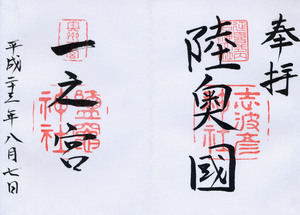 奉拝
陸奥國
志波彦
神社
一之宮
鹽竈
神社
平成二十三年八月七日